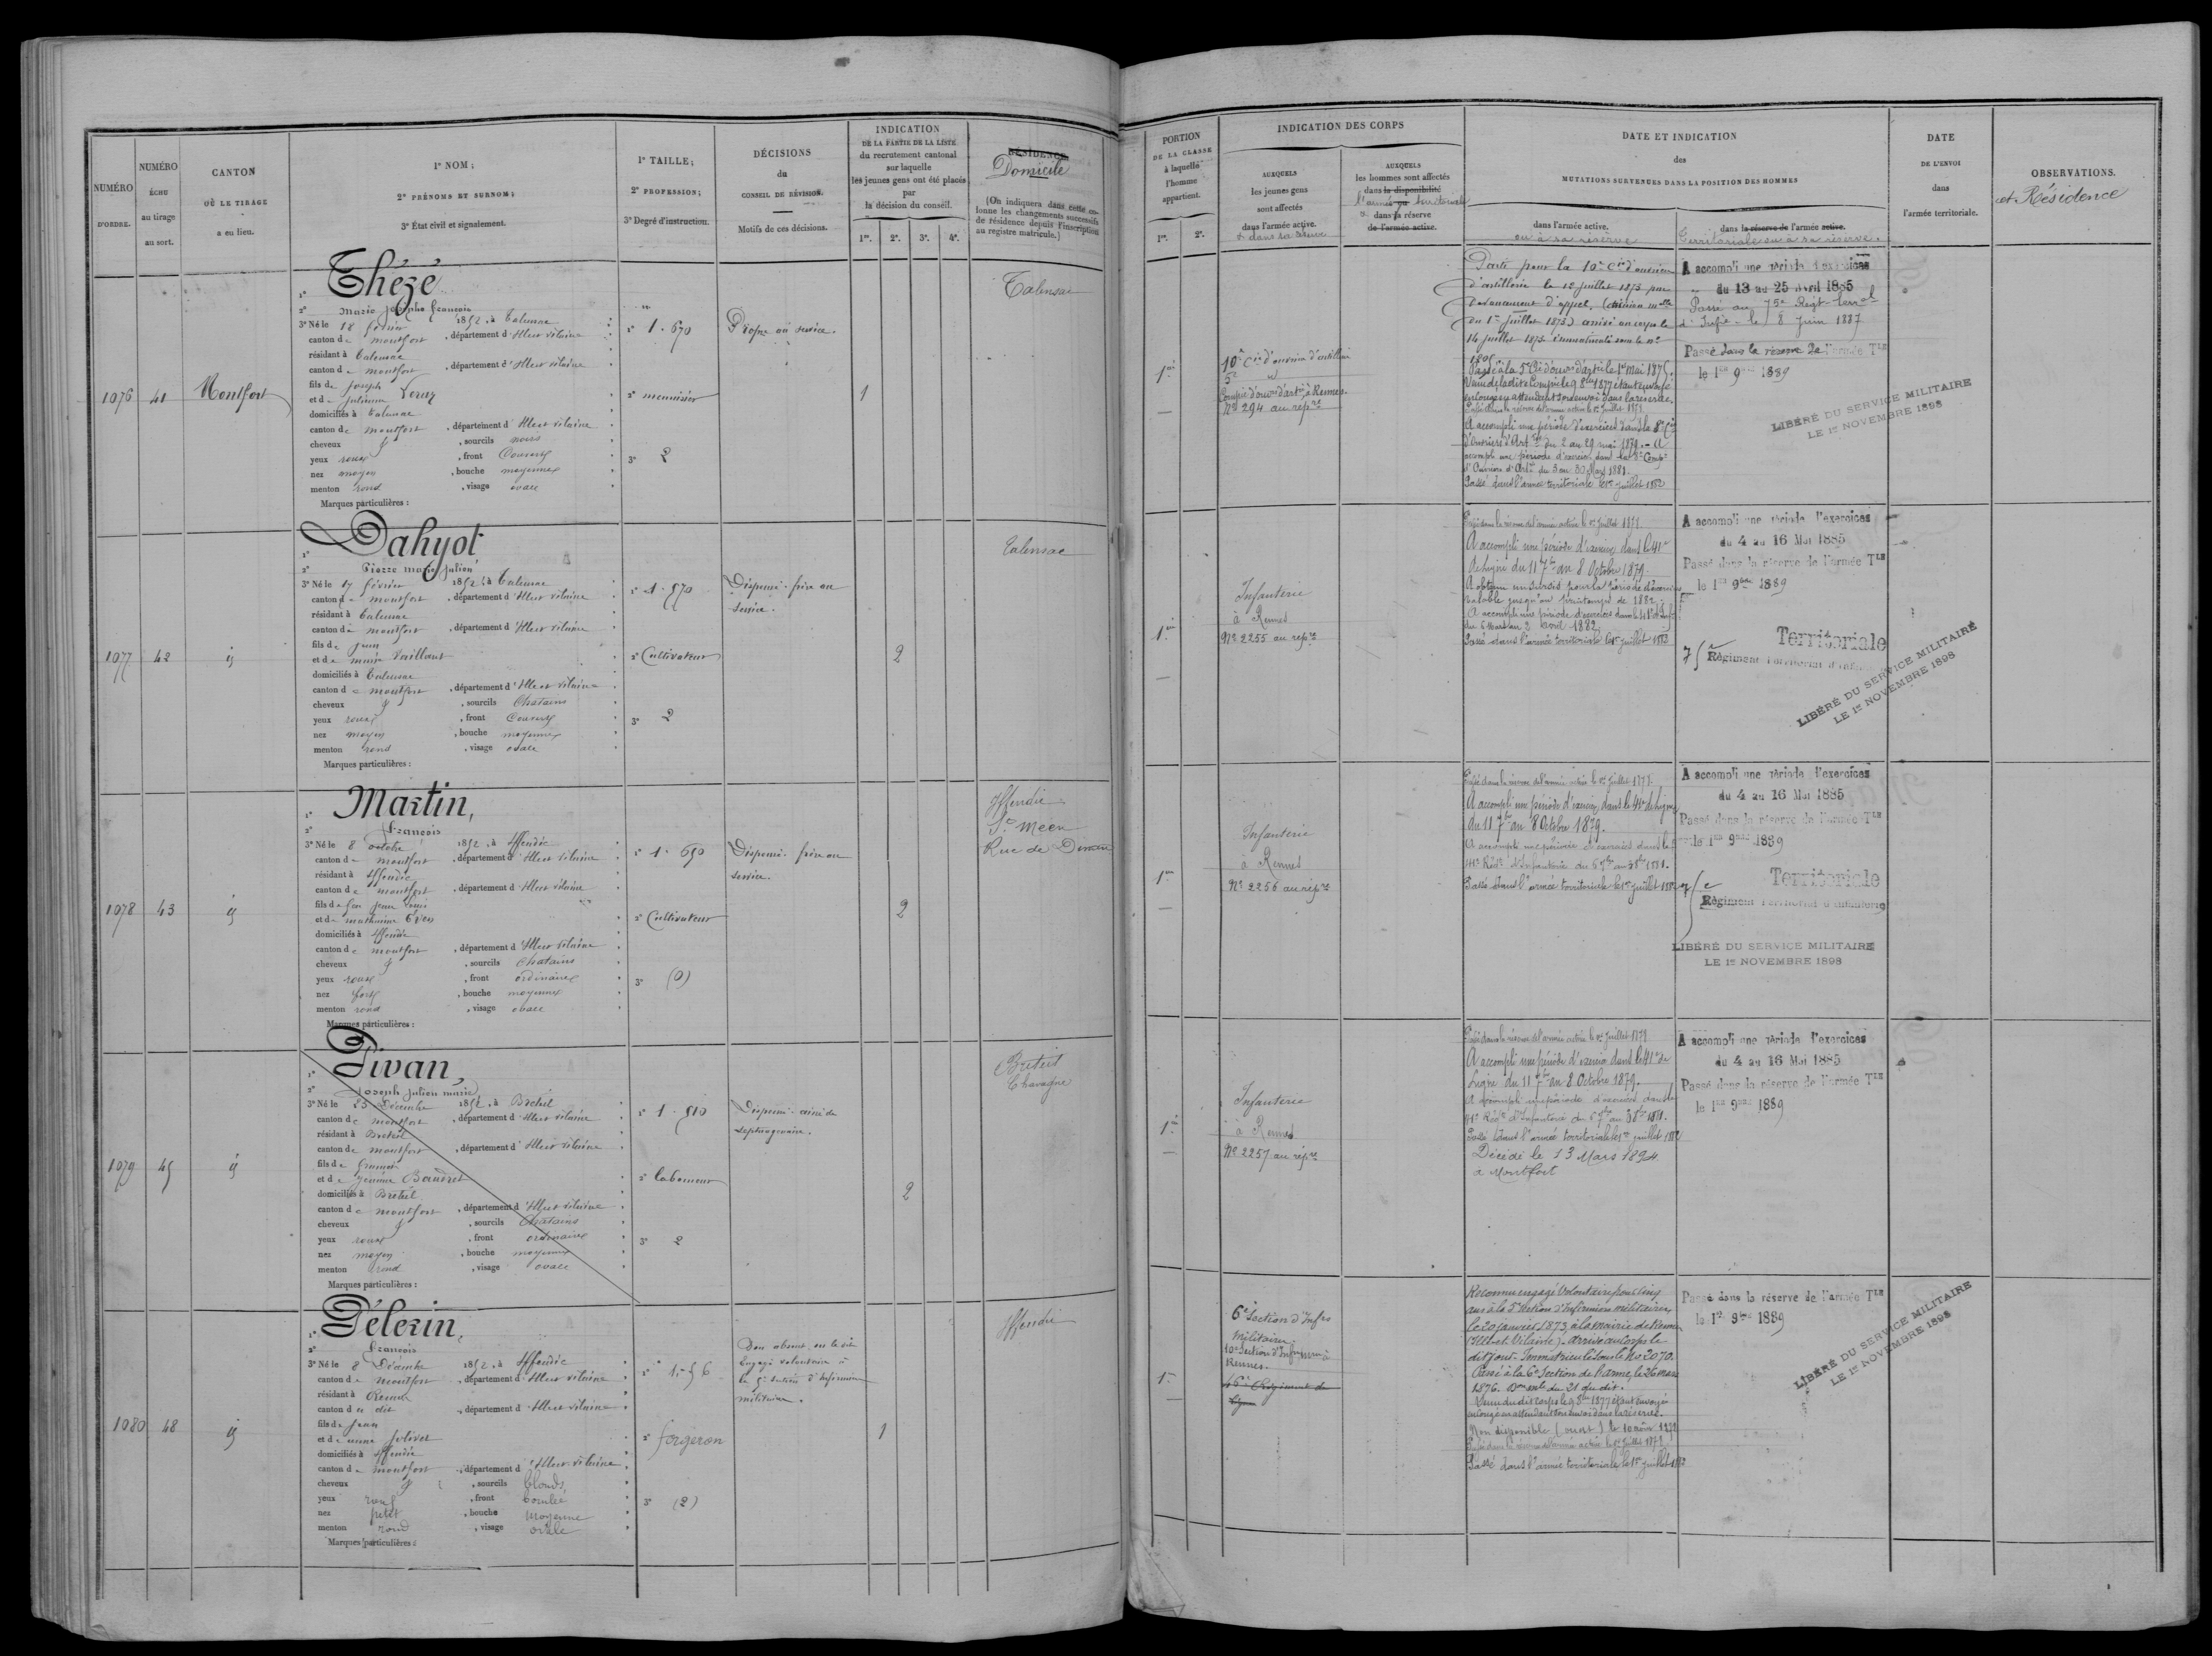 NUMÉRO D'ORDRE.
NUMÉRO ÉCHU au tirage au sort.
CANTON OÙ LE TIRAGE a eu lieu.
1° NOM;
2° PRÉNOMS ET SURNOM;
3° État civil et signalement.
1° TAILLE;
2° PROFESSION;
3° Degré d'instruction.
DÉCISIONS du CONSEIL DE RÉVISION.
Motifs de ces décisions.
INDICATION
DE LA PARTIE DE LA LISTE
du recrutement cantonal
sur laquelle
les jeunes gens ont été placés
par
la décision du conseil.
1re. 2e. 3e. 4e.
RÉSIDENCE
Domicile
(On indiquera dans cette colonne les changements successifs de résidence depuis l'inscription au registre matricule.)
PORTION
DE LA CLASSE
à laquelle
l'homme
appartient.
1re. 2e.
INDICATION DES CORPS
AUXQUELS
les jeunes gens
sont affectés
dans l'armée active.
et dans sa réserve
AUXQUELS
les hommes sont affectés
dans la disponibilité
l'armée territoriale
dans sa réserve
de l'armée active.
DATE ET INDICATION
des
MUTATIONS SURVENUES DANS LA POSITION DES HOMMES
dans l'armée active.
ou à sa réserve
dans la réserve de l'armée active.
Territoriale ou à sa réserve.
DATE
DE L'ENVOI
dans
l'armée territoriale.
OBSERVATIONS.
et Résidence
1076
41
Montfort
1° Thézé
2° Marie Joseph François
3° Né le 18 février 1852, à Talensac
canton de Montfort, département d'Ille et Vilaine
résidant à Talensac
canton de Montfort, département d'Ille et Vilaine
fils de Joseph
et de Julienne
domiciliés à Talensac
canton de Montfort, département d'Ille et Vilaine
cheveux et, sourcils noirs
yeux roux, front Couvert
nez moyen, bouche moyenne
menton rond, visage ovale
Marques particulières :
1° 1.670
2° menuisier
3° 2
Propre au service.
1
Talensac
1re
10e Cie d'ouvriers d'artillerie
5e
Compie d'ouvrs d'artie à Rennes.
No 294 au repre
Parti pour la 10e Cie d'ouvriers
d'artillerie le 12 juillet 1873 par
devancement d'appel. (décision mlle
du 1er Juillet 1873) arrivé au corps le
14 juillet 1873 immatriculé sous le no
Passé à la 5e Cie d'ouvrs d'artie le 1er mai 1875.
en congé en attendant son envoi dans la réserve.
A accompli une période d'exercices dans la 8e Cie
d'ouvriers d'Artie du 2 au 29 mai 1879. - A
accompli une période d'exercices dans la 8e Compie
d'Ouvriers d'Artie du 3 au 30 Mars 1881.
Passé dans l'armée territoriale le 1er juillet 1882
A accompli une période d'exercices
du 13 au 25 Avril 1885
Passé au 75e Régt terral
d'Infie le 8 Juin 1887
Passé dans la réserve de l'armée Tle
le 1er 9bre 1889
LIBÉRÉ DU SERVICE MILITAIRE
LE 1er NOVEMBRE 1898
1077
42
id
1° Dahyot
2° Pierre Marie Julien
3° Né le 17 février 1852, à Talensac
canton de Montfort, département d'Ille et Vilaine
résidant à Talensac
canton de Montfort, département d'Ille et Vilaine
fils de Jean
et de marie Vaillant
domiciliés à Talensac
canton de Montfort, département d'Ille et Vilaine
cheveux et, sourcils Chatains
yeux roux, front Couvert
nez moyen, bouche moyenne
menton rond, visage ovale
Marques particulières :
1° 1.570
2° Cultivateur
3° 2
Dispensé - frère au
service.
2
Talensac
1re
Infanterie
à Rennes
No 2255 au repre
Passé dans la réserve de l'armée active le 1er Juillet 1877.
A accompli une période d'exercices dans le 41e
de ligne du 11 7bre au 8 Octobre 1879.
A obtenu un sursis pour la période d'exercices
valable jusqu'au printemps de 1882.
A accompli une période d'exercices dans le 41e d'Infie
du 6 Mars au 2 avril 1882
Passé dans l'armée territoriale le 1er juillet 1882
A accompli une période d'exercices
du 4 au 16 Mai 1885
Passé dans la réserve de l'armée Tle
le 1er 9bre 1889
Territoriale
75e Régiment Territorial d'Infanterie
LIBÉRÉ DU SERVICE MILITAIRE
LE 1er NOVEMBRE 1898
1078
43
id
1° Martin,
2° François
3° Né le 8 octobre 1852, à Iffendic
canton de Montfort, département d'Ille et Vilaine
résidant à Iffendic
canton de Montfort, département d'Ille et Vilaine
fils de feu Jean Louis
et de mathurine
domiciliés à Iffendic
canton de Montfort, département d'Ille et Vilaine
cheveux et, sourcils Chatains
yeux roux, front ordinaire
nez fort, bouche moyenne
menton rond, visage ovale
Marques particulières :
1° 1.650
2° Cultivateur
3° (0)
Dispensé - frère au
service.
2
Iffendic
St Méen
Rue de Dinan
1re
Infanterie
à Rennes
No 2256 au repre
Passé dans la réserve de l'armée active le 1er Juillet 1877.
A accompli une période d'exercices dans le 41e de Ligne
du 11 7bre au 8 Octobre 1879.
A accompli une période d'exercices dans le
41e Régt d'Infanterie du 6 7bre au 3 8bre 1881.
Passé dans l'armée territoriale le 1er juillet 1882
A accompli une période d'exercices
du 4 au 16 Mai 1885
Passé dans la réserve de l'armée Tle
le 1er 9bre 1889
Territoriale
75e Régiment Territorial d'Infanterie
LIBÉRÉ DU SERVICE MILITAIRE
LE 1er NOVEMBRE 1898
1079
45
id
1° Pivan,
2° Joseph Julien Marie
3° Né le 25 Décembre 1852, à Breteil
canton de Montfort, département d'Ille et Vilaine
résidant à Breteil
canton de Montfort, département d'Ille et Vilaine
fils de
et de
domiciliés à Breteil
canton de Montfort, département d'Ille et Vilaine
cheveux et, sourcils Chatains
yeux roux, front ordinaire
nez moyen, bouche moyenne
menton rond, visage ovale
Marques particulières :
1° 1.510
2° laboureur
3° 2
Dispensé - ainé de
septuagénaire.
2
Breteil
Chavagne
1re
Infanterie
à Rennes
No 2257 au repre
Passé dans la réserve de l'armée active le 1er Juillet 1877
A accompli une période d'exercices dans le 41e de
Ligne du 11 7bre au 8 Octobre 1879.
A accompli une période d'exercices dans le
41e Régt d'Infanterie du 6 7bre au 3 8bre 1881.
Passé dans l'armée territoriale le 1er juillet 1882
Décédé le 13 Mars 1894
à Montfort
A accompli une période d'exercices
du 4 au 16 Mai 1885
Passé dans la réserve de l'armée Tle
le 1er 9bre 1889
1080
48
id
1° Pélerin,
2° François
3° Né le 8 Décembre 1852, à Iffendic
canton de Montfort, département d'Ille et Vilaine
résidant à Rennes
canton du dit, département d'Ille et Vilaine
fils de Jean
et de anne Jolivet
domiciliés à Iffendic
canton de Montfort, département d'Ille et Vilaine
cheveux et, sourcils blonds
yeux roux, front bombé
nez petit, bouche moyenne
menton rond, visage ovale
Marques particulières :
1° 1.56
2° forgeron
3° (2)
Bon absent, on le dit
Engagé volontaire à
la 5e section d'infirmiers
militaires.
1
Iffendic
1re
6e Section d'Infrs
Militaires.
10e Section d'Infirmiers à
Rennes.
Régiment de
Ligne
Reconnu engagé volontaire pour cinq
ans à la 5e Section d'Infirmiers militaires
le 20 janvier 1873, à la mairie de Rennes
(Ille-et-Vilaine) - arrivé au corps le
dit jour - Immatriculé sous le No 2070.
Passé à la 6e Section de l'arme, le 26 mars
1876. Don mle du 21 du dit.
Venu du dit corps le 9 8bre 1877 étant envoyé
en congé en attendant son envoi dans la réserve.
Non disponible (ouest) le 10 août
Passé dans la réserve de l'armée active le 1er Juillet
Passé dans l'armée territoriale le 1er juillet 1882
Passé dans la réserve de l'armée Tle
le 1er 9bre 1889
LIBÉRÉ DU SERVICE MILITAIRE
LE 1er NOVEMBRE 1898